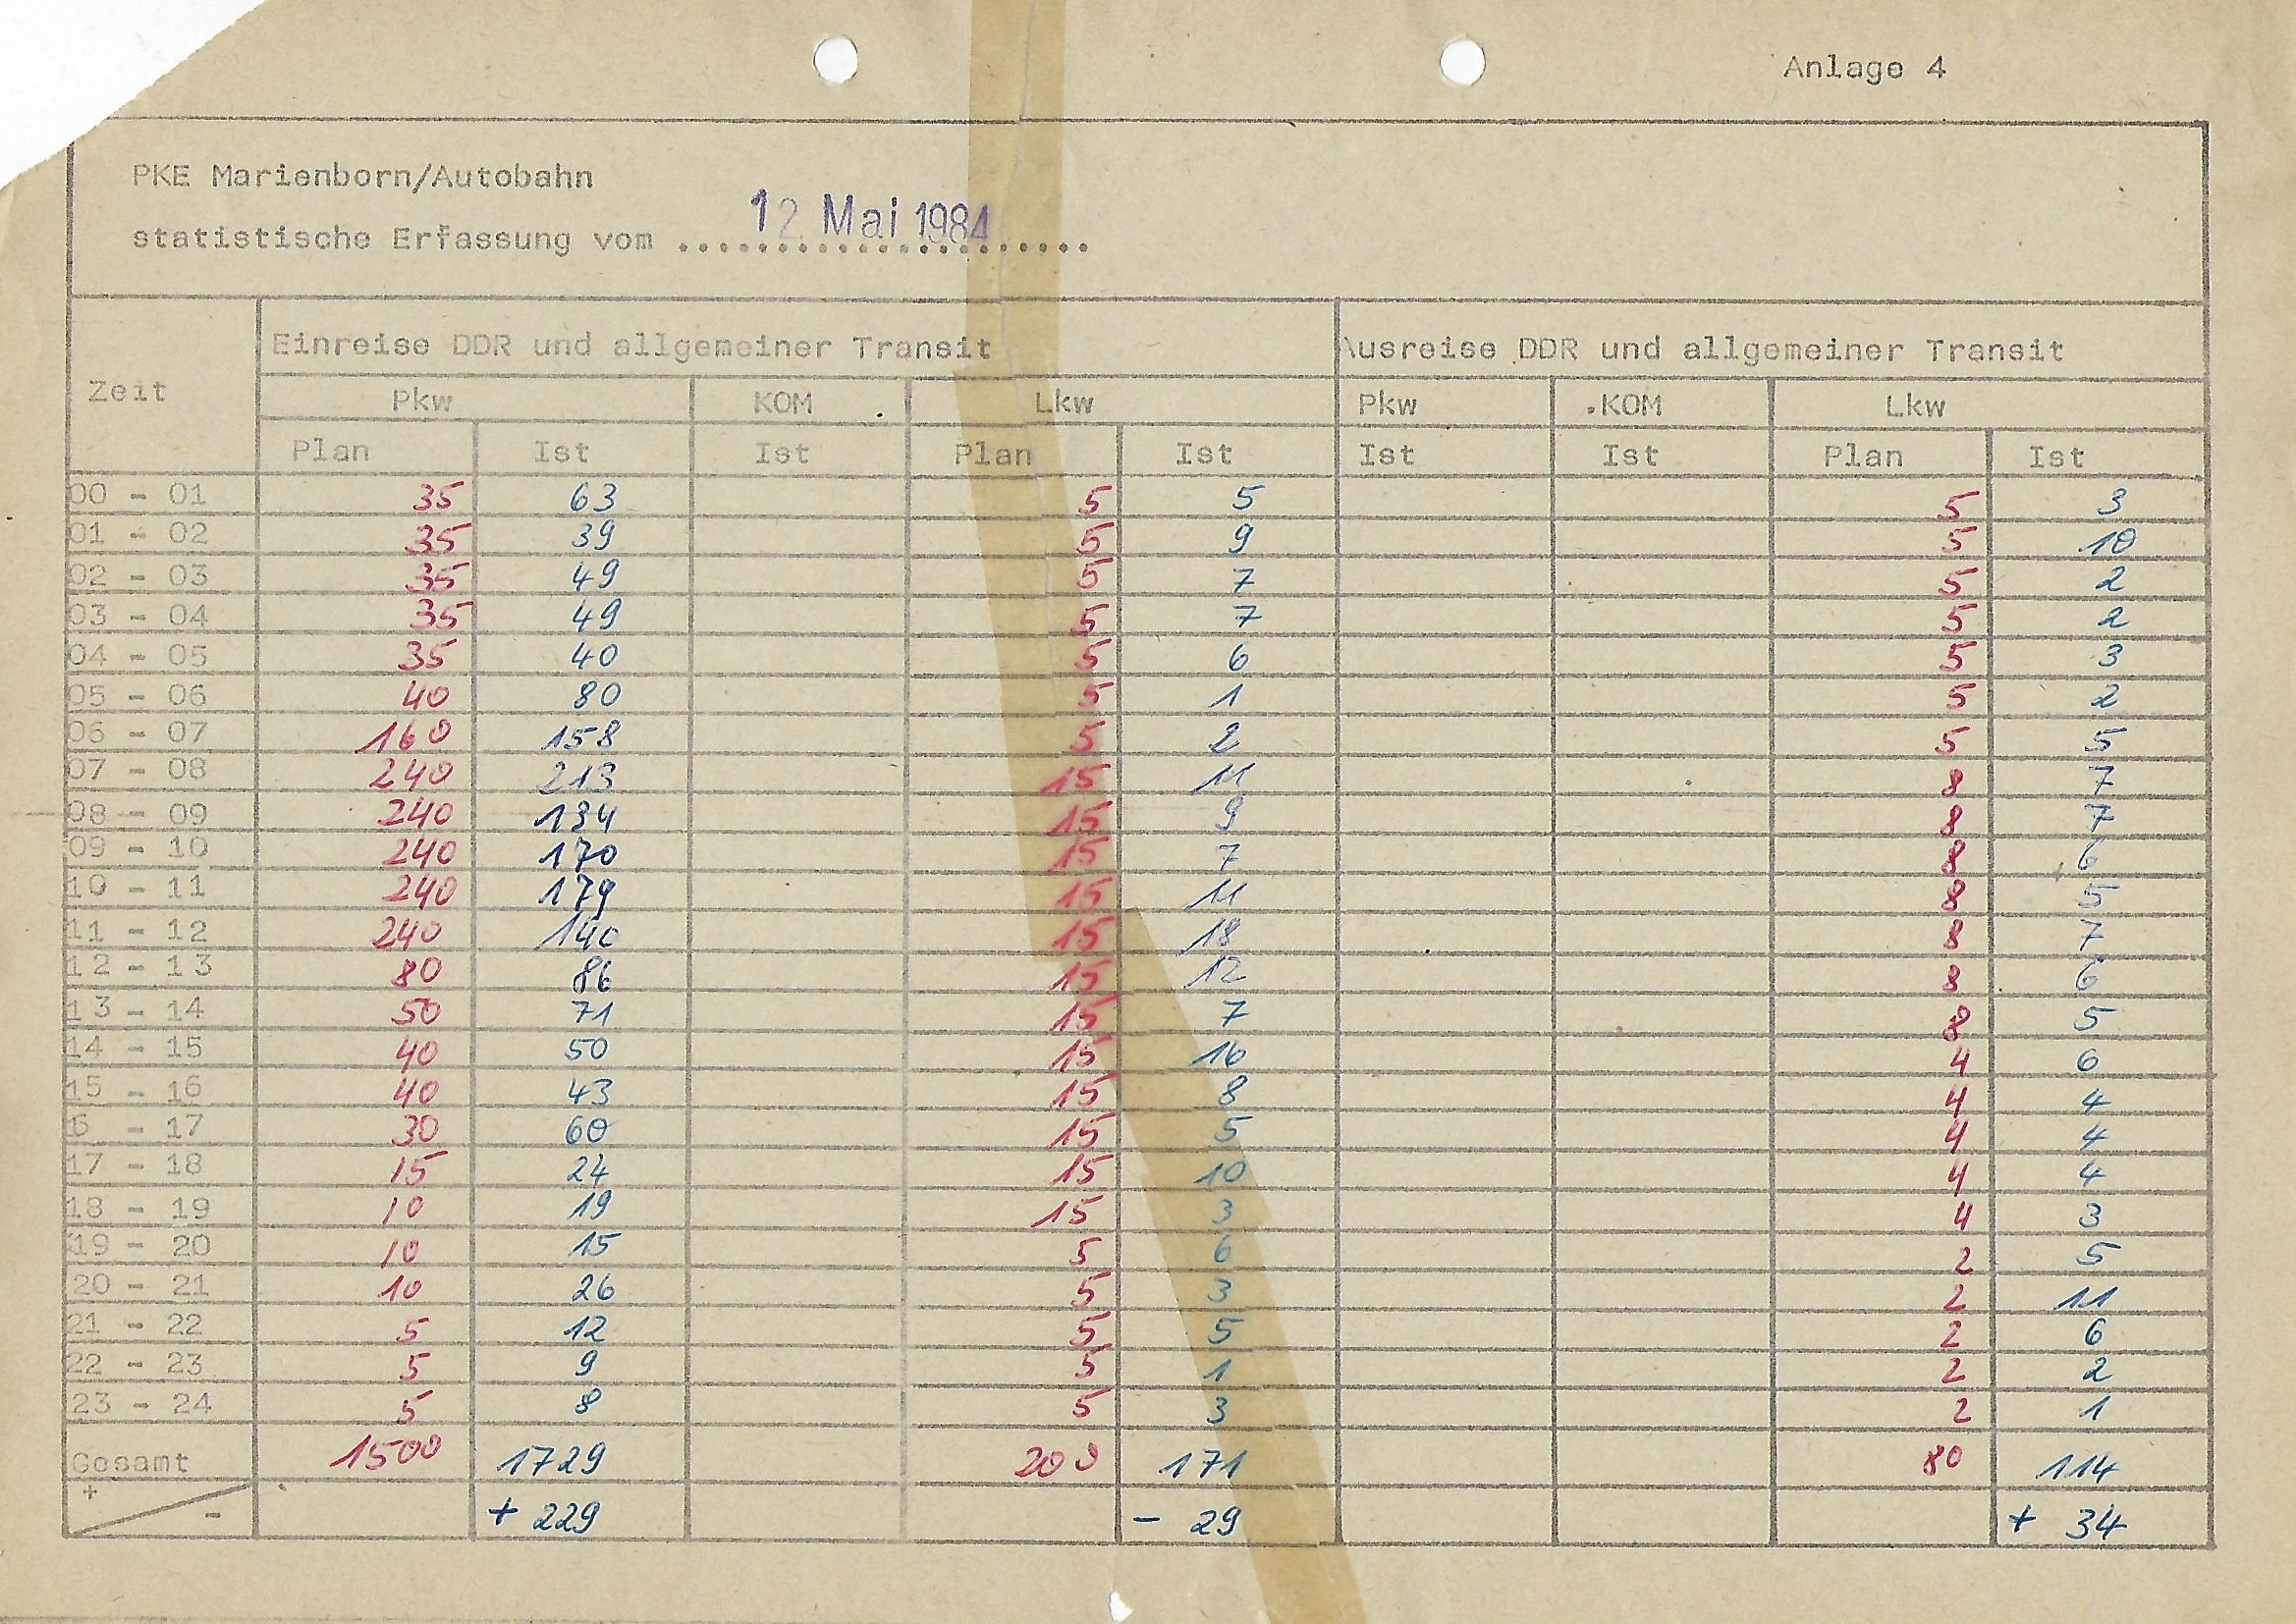 Anlage 4
PKE Marienborn/Autobahn
statistische Erfassung vom 12. Mai 1984
Zeit Einreise DDR und allgemeiner Transit Ausreise DDR und allgemeiner Transit
Pkw KOM Lkw Pkw KOM Lkw
Plan Ist Ist Plan Ist Ist Ist Plan Ist
00 - 01 35 63 5 5 5 3
01 - 02 35 39 5 9 5 10
02 - 03 35 49 5 7 5 2
03 - 04 35 49 5 7 5 2
04 - 05 35 40 5 6 5 3
05 - 06 40 80 5 1 5 2
06 - 07 160 158 5 2 5 5
07 - 08 240 213 15 11 8 7
08 - 09 240 134 15 9 8 7
09 - 10 240 170 15 7 8 6
10 - 11 240 179 15 11 8 5
11 - 12 240 140 15 18 8 7
12 - 13 80 86 15 12 8 6
13 - 14 50 71 15 7 8 5
14 - 15 40 50 15 16 4 6
15 - 16 40 43 15 8 4 4
6 - 17 30 60 15 5 4 4
17 - 18 15 24 15 10 4 4
18 - 19 10 19 15 3 4 3
19 - 20 10 15 5 6 2 5
20 - 21 10 26 5 3 2 11
21 - 22 5 12 5 5 2 6
22 - 23 5 9 5 1 2 2
23 - 24 5 8 5 3 2 1
Gesamt 1500 1729 200 171 80 114
+ - + 229 - 29 + 34